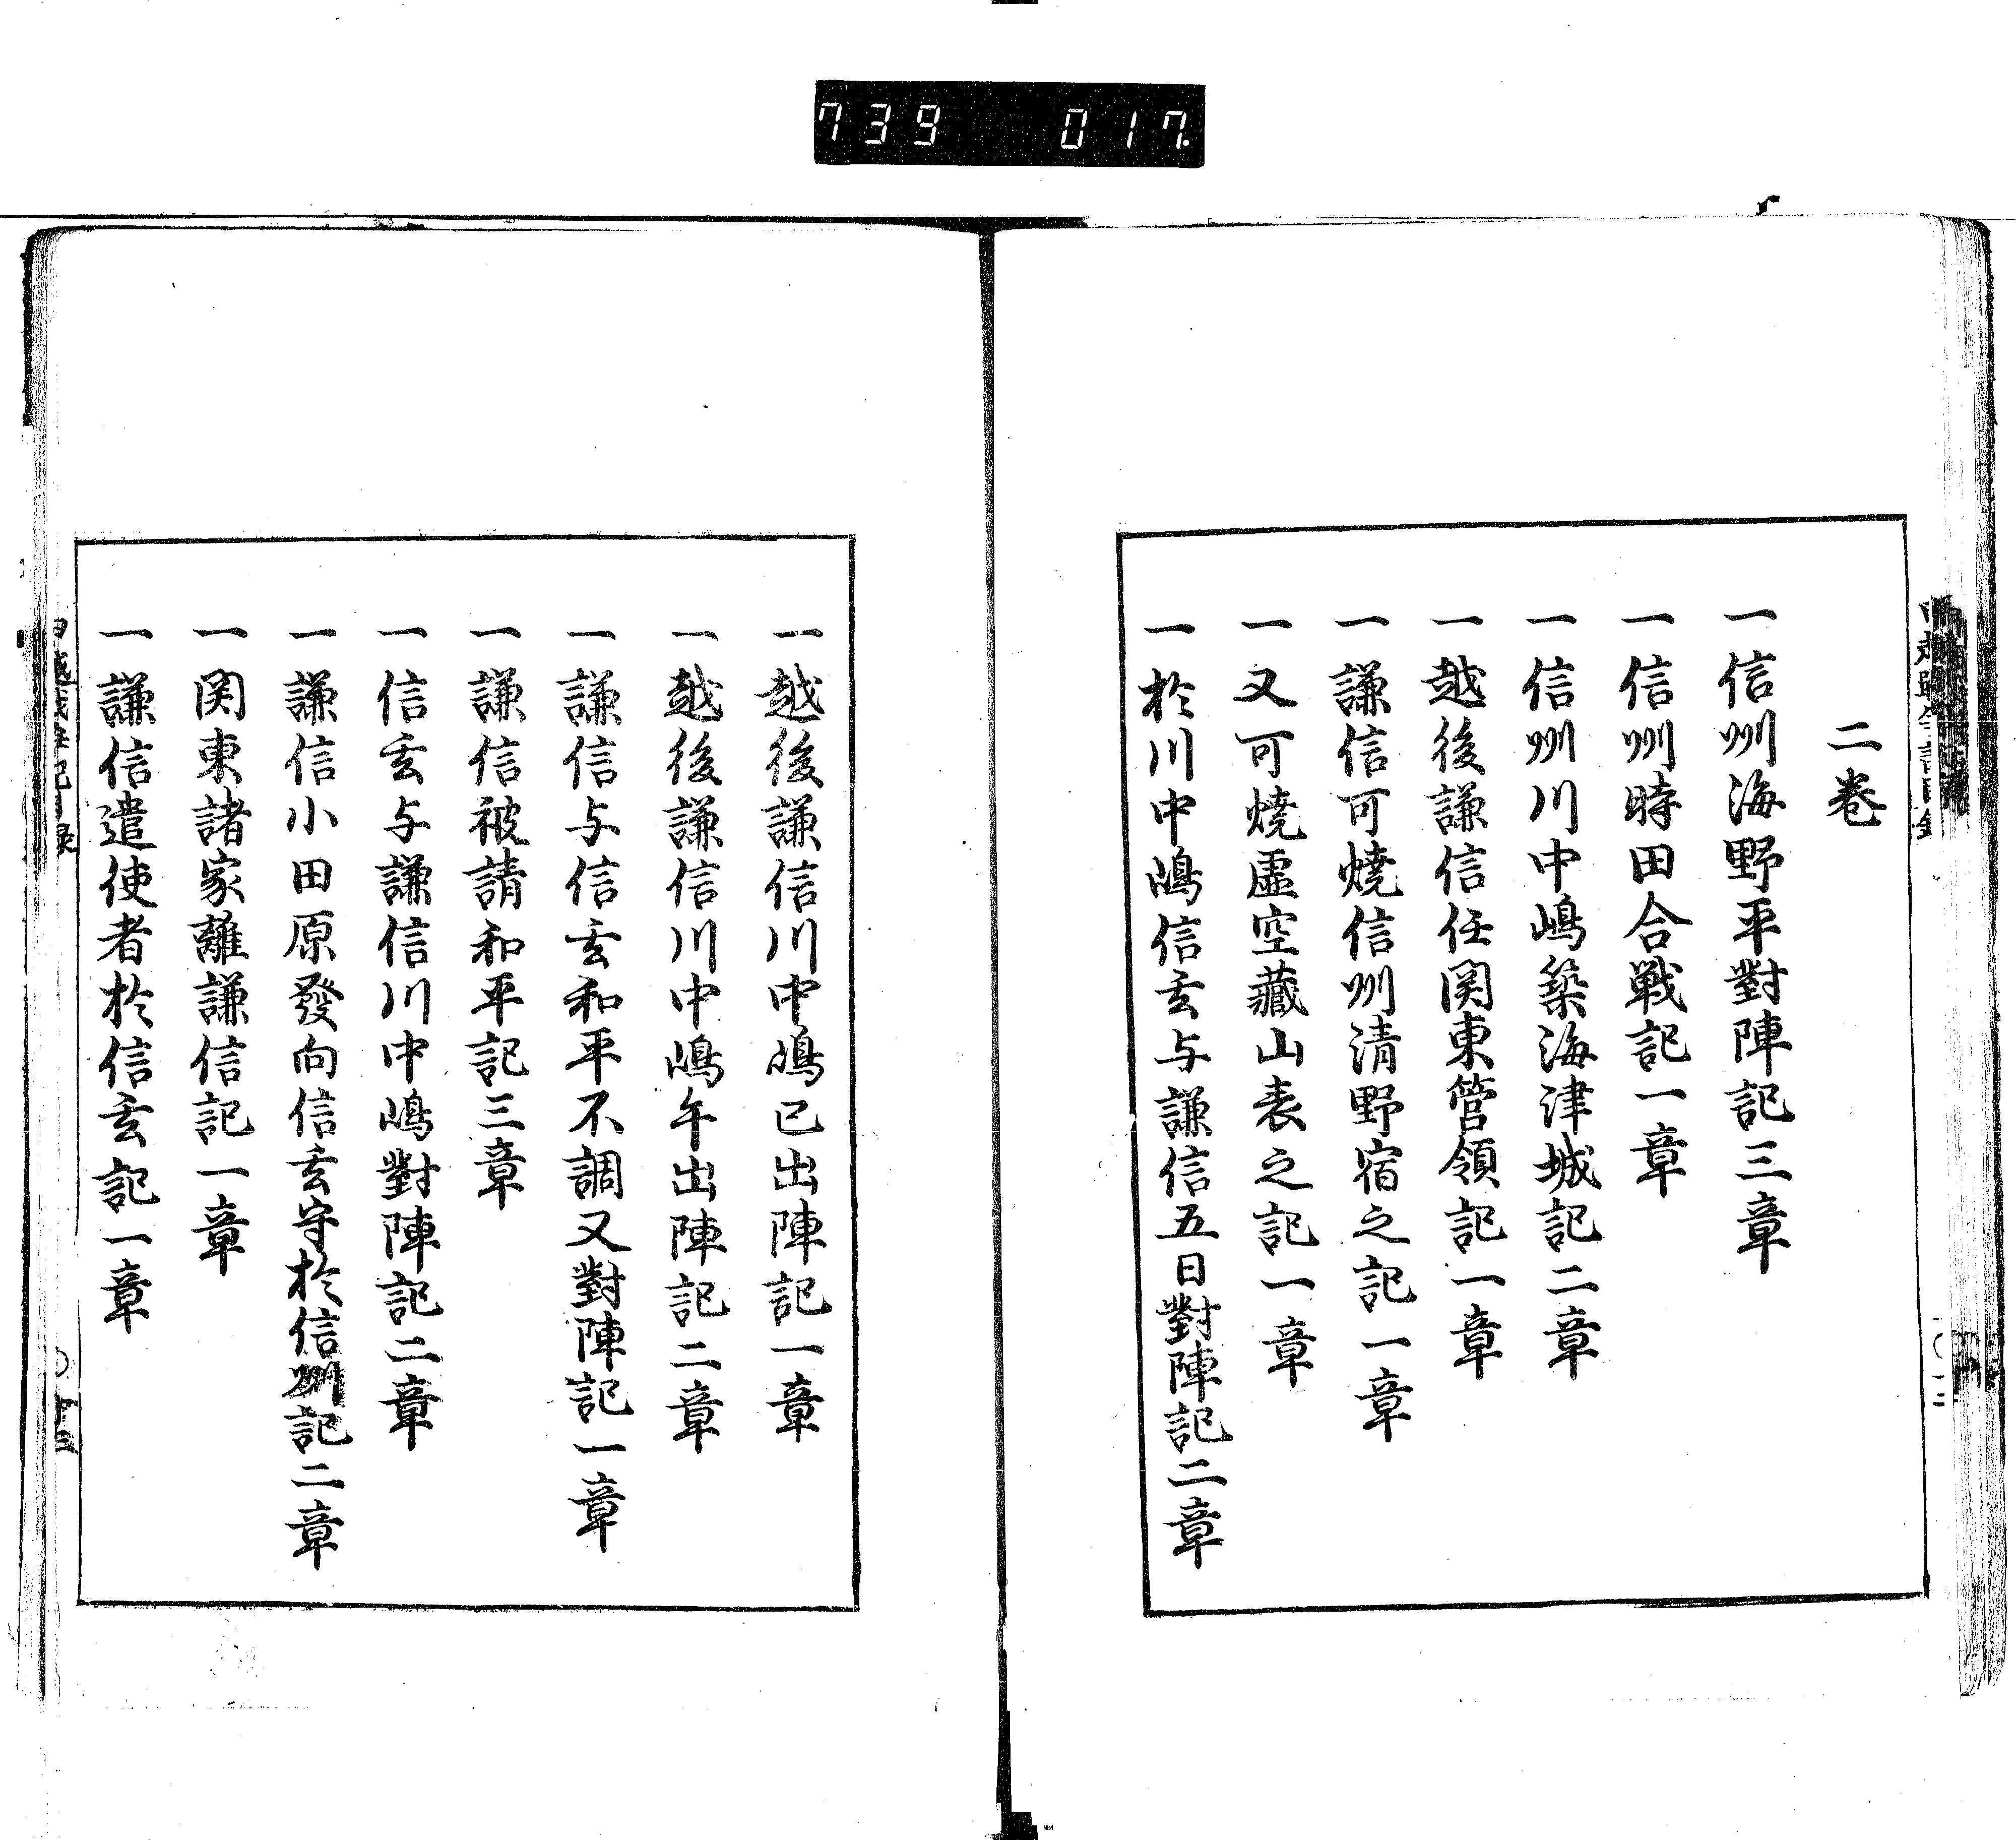 739 017
二巻
一信州海野平對陣記三章
一信州時田合戦記一章
一信州川中嶋築海津城記二章
一越後謙信任関東管領記一章
一謙信可燒信州清野宿之記一章
一又可燒虛空藏山表之記一章
一於川中嶋信玄与謙信五日對陣記二章
一越後謙信川中嶋已出陣記一章
一越後謙信川中嶋午出陣記二章
一謙信与信玄和平不調又對陣記一章
一謙信被請和平記三章
一信玄与謙信川中嶋對陣記二章
一謙信小田原發向信玄守於信州記二章
一関東諸家離謙信記一章
一謙信遣使者於信玄記一章